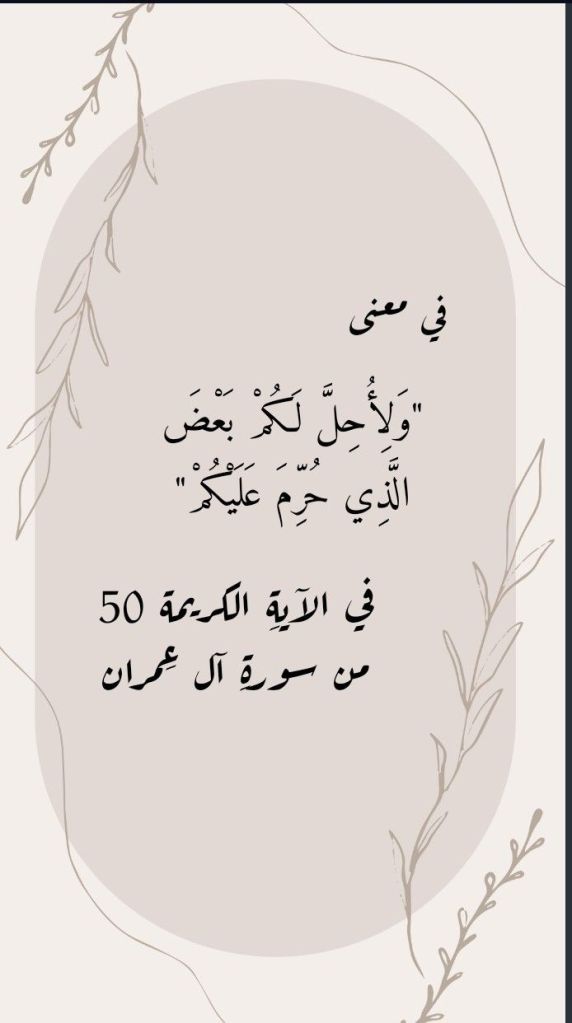 في معنى
"وَلِأُحِلَّ لَكُمْ بَعْضَ
الَّذِي حُرِّمَ عَلَيْكُمْ"
في الآيةِ الكريمة 50
من سورةِ آل عِمران